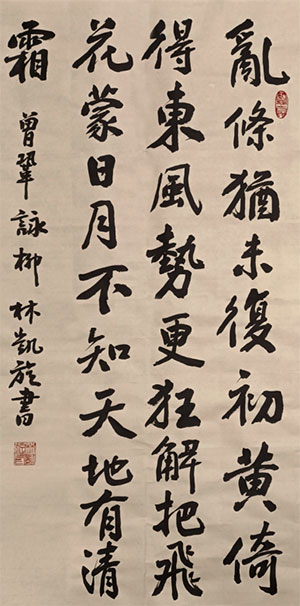 亂條猶未復初黃倚
得東風勢更狂解把飛
花蒙日月不知天地有清
霜
曾鞏詠柳 林凱旋書